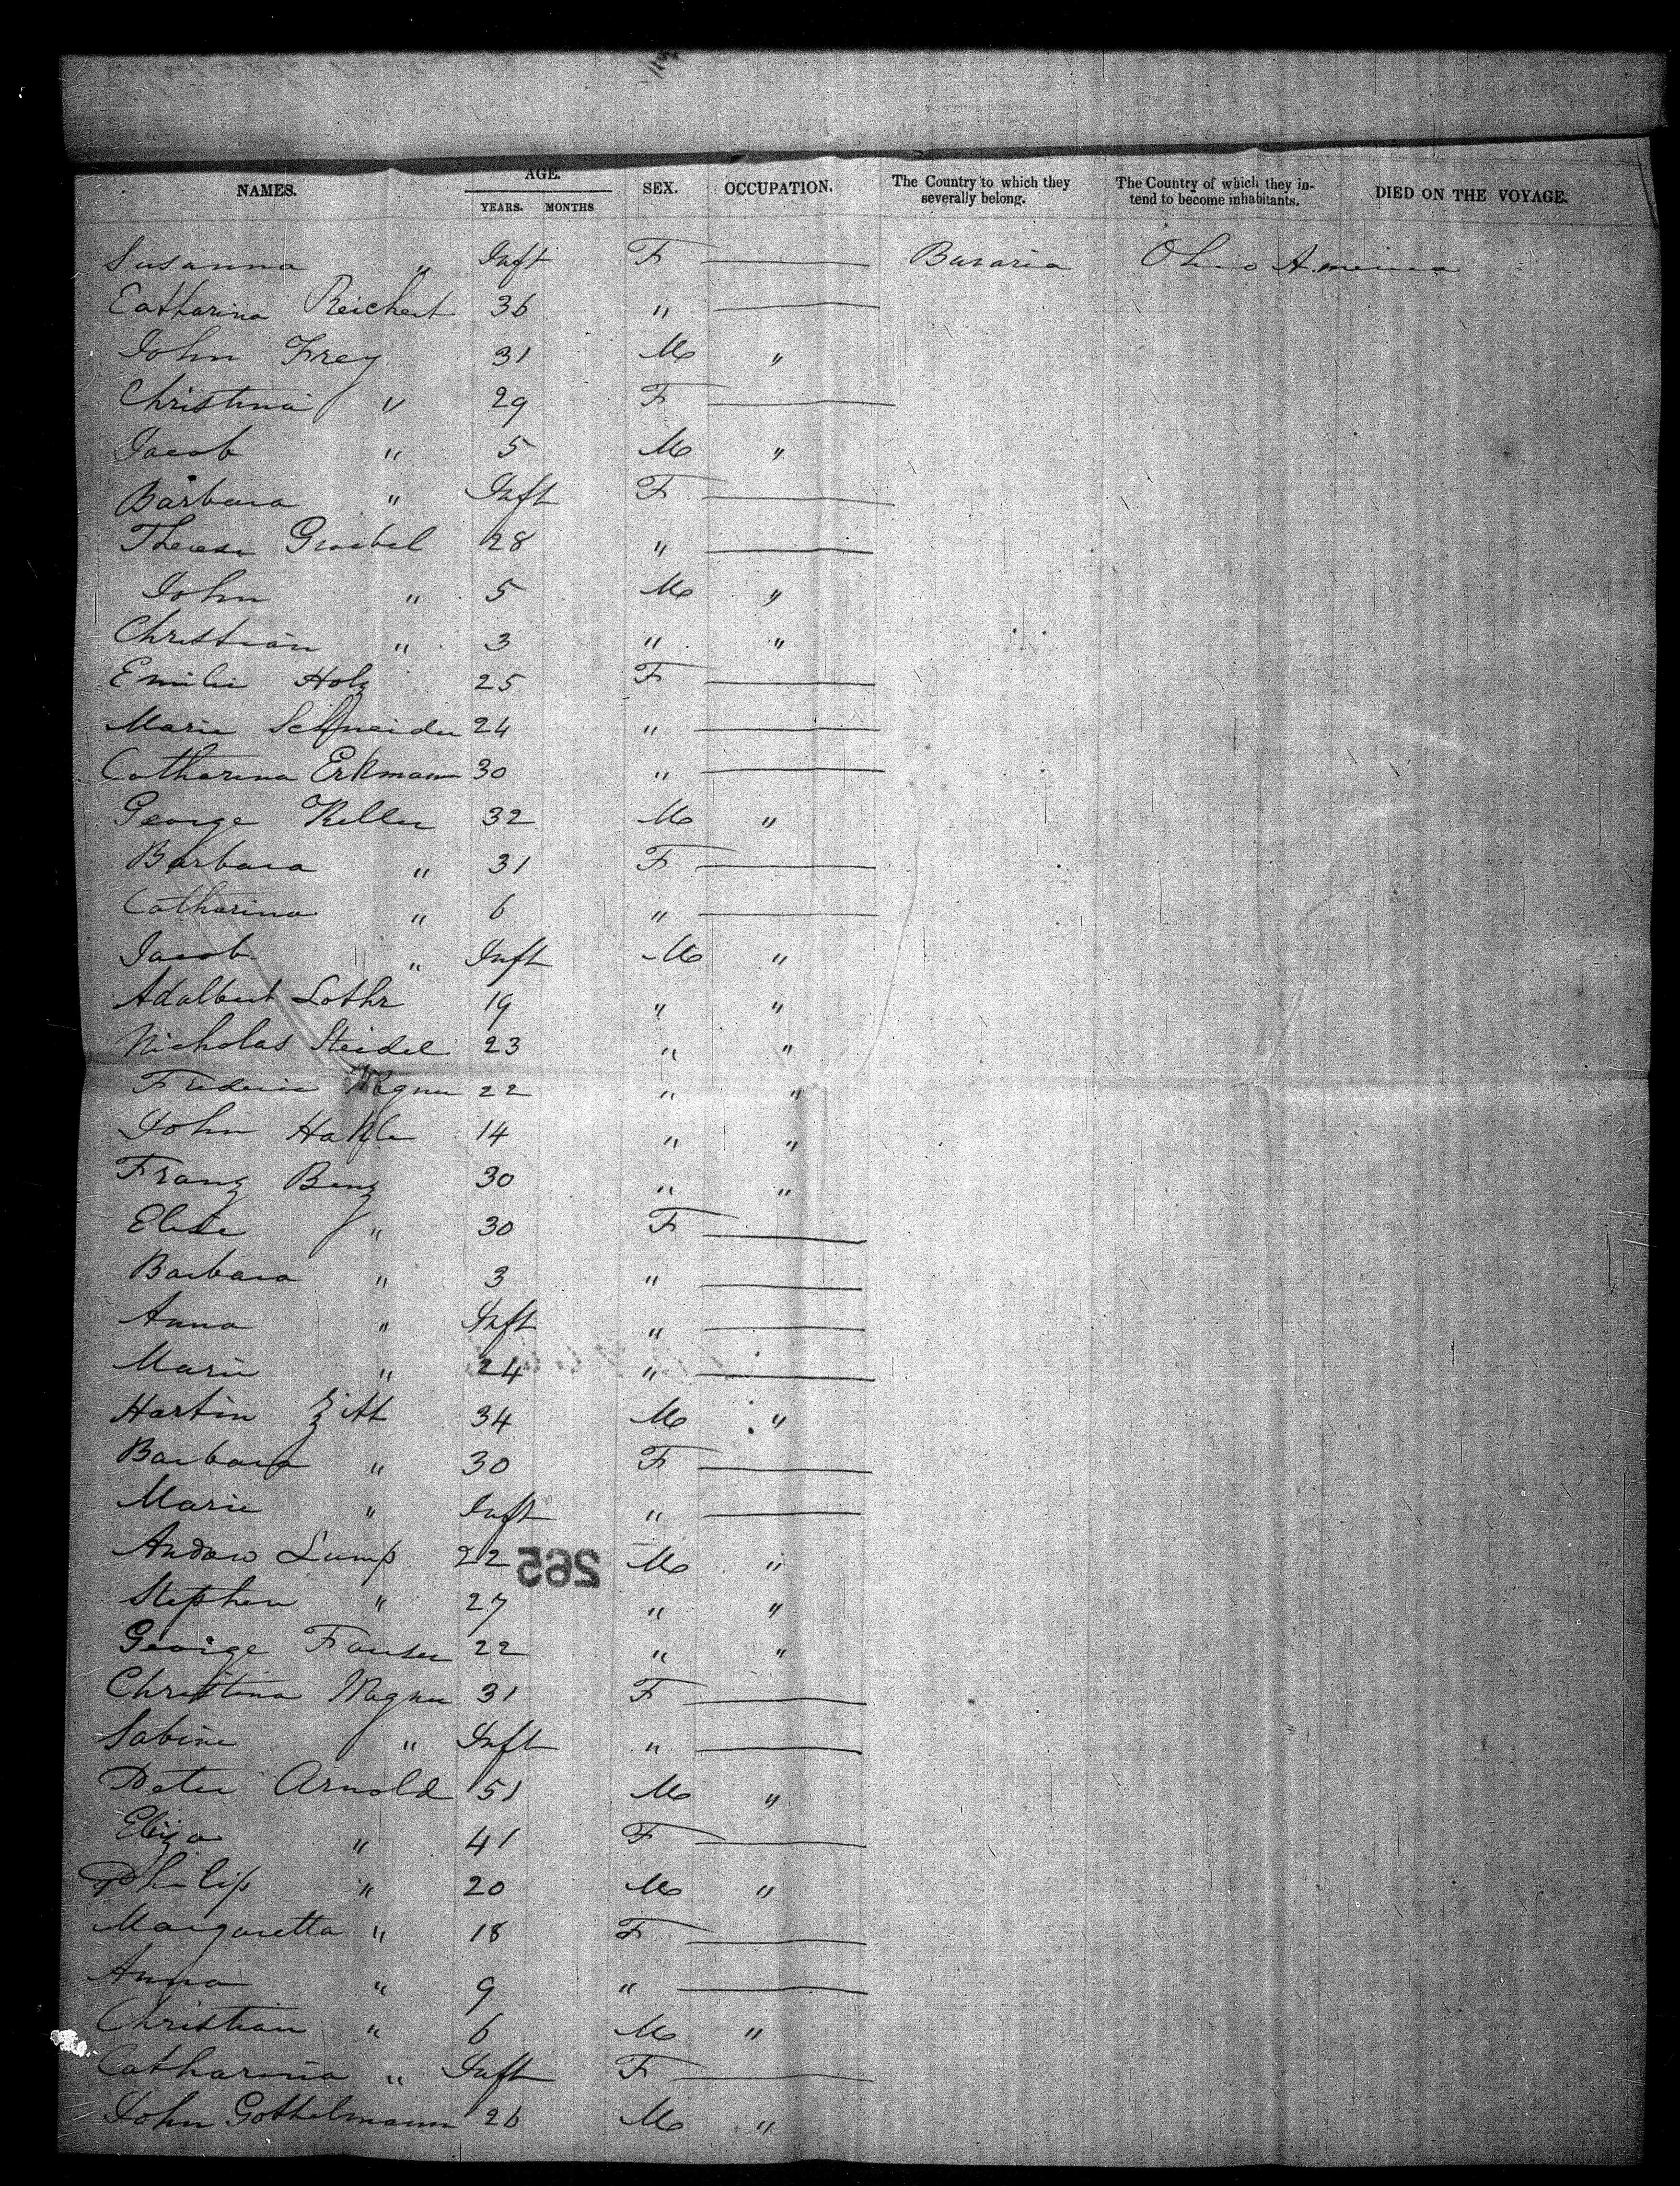 NAMES. AGE. YEARS. MONTHS SEX. OCCUPATION. The Country to which they severally belong. The Country of which they intend to become inhabitants. DIED ON THE VOYAGE.
Susanna " Inft F Bavaria Ohio America
Catharina Reichert 36 "
John Frey 31 M "
Christina " 29 F
Jacob " 5 M "
Barbara " Inft F
Theresa Groebel 28 "
John " 5 M "
Christian " 3 " "
Emilie Holz 25 F
Marie Schneider 24 "
Catharina Erkmann 30 "
George Keller 32 M "
Barbara " 31 F
Catharina " 6 "
Jacob " Inft M "
Adalbert Lothr 19 " "
Nicholas Steidel 23 " "
Frederic Wagner 22 " "
John 14 " "
Franz Benz 30 " "
Elise " 30 F
Barbara " 3 "
Anna " Inft "
Marie " 24 "
Martin Zitt 34 M "
Barbara " 30 F
Marie " Inft "
Andrew Lump 22 M "
265
Stephen " 27 " "
George Fauser 22 " "
Christina Wagner 31 F
Sabine " Inft "
Peter Arnold 51 M "
Eliza " 41 F
Philip " 20 M "
Margaretta " 18 F
Anna " 9 "
Christian " 6 M "
Catharina " Inft F
John Gothelmann 26 M "